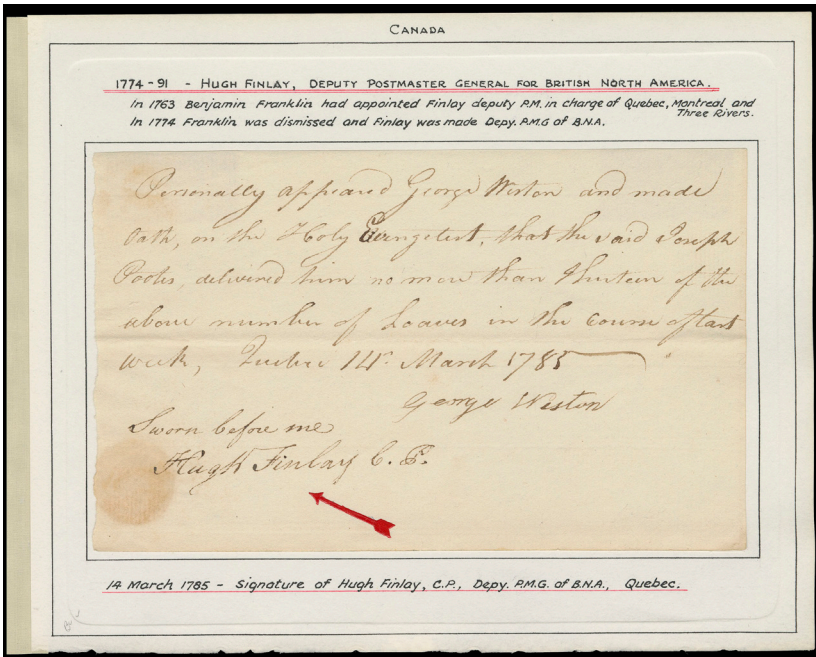 CANADA
1774-91 - HUGH FINLAY, DEPUTY POSTMASTER GENERAL FOR BRITISH NORTH AMERICA.
In 1763 Benjamin Franklin had appointed Finlay deputy P.M. in charge of Quebec, Montreal and
Three Rivers.
In 1774 Franklin was dismissed and Finlay was made Depy. P.M.G of B.N.A.
Personally appeared George Weston and made
Oath, on the Holy Evangelist, that the said Joseph
delivered him no more than thirteen of the
above number of Loaves in the course of last
week, Quebec 14th March 1785
George Weston
Sworn before me
Hugh Finlay C. P.
14 March 1785 - Signature of Hugh Finlay, C.P., Depy. P.M.G. of B.N.A., Quebec.